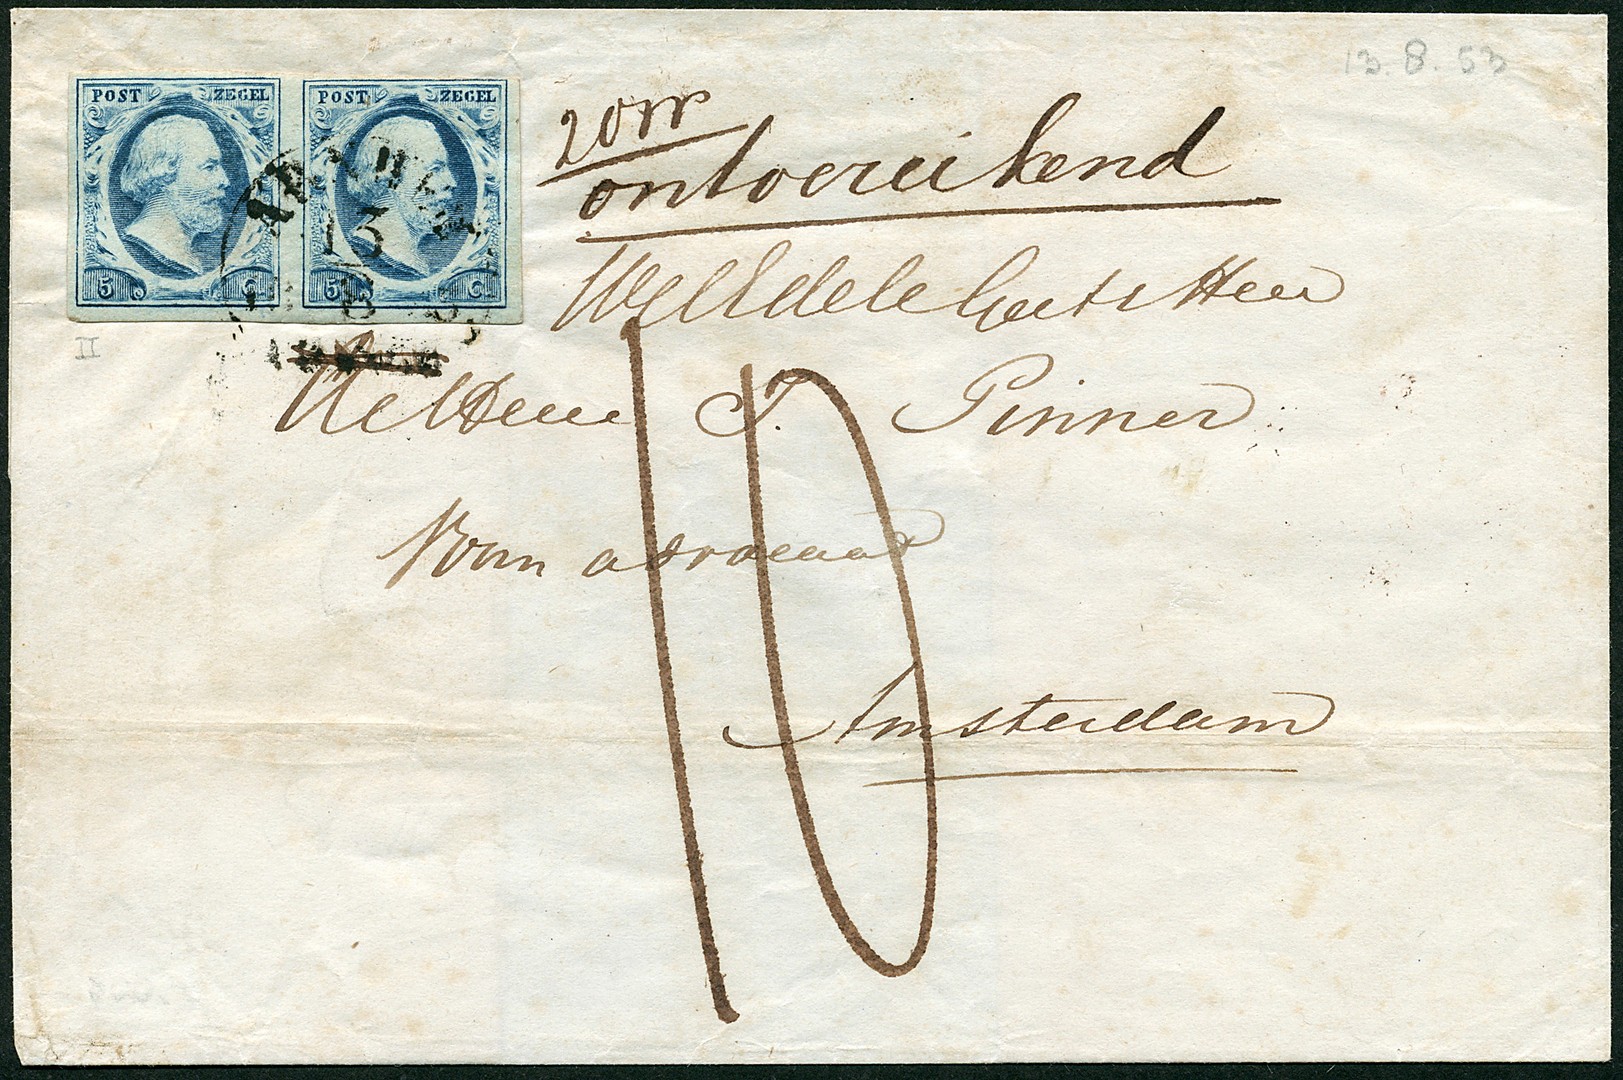 13. 8. 53
POST ZEGEL POST ZEGEL
5 C 5 C
13
8
II
ontoereikend
WelEdele Heer
De Heer J. Pinner
advocaat
Amsterdam
10